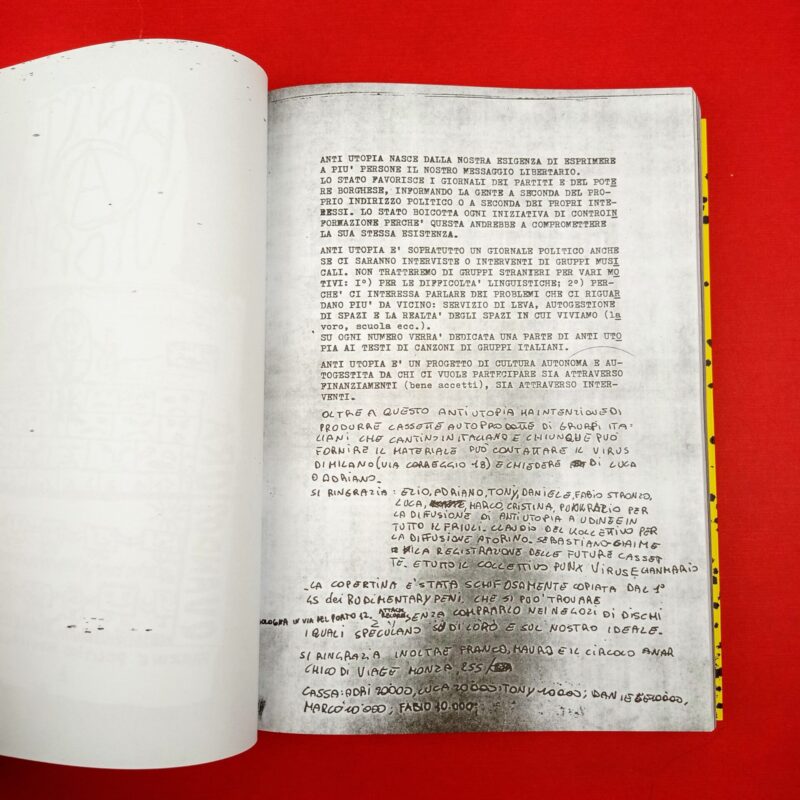 ANTI UTOPIA NASCE DALLA NOSTRA ESIGENZA DI ESPRIMERE
A PIU' PERSONE IL NOSTRO MESSAGGIO LIBERTARIO.
LO STATO FAVORISCE I GIORNALI DEI PARTITI E DEL POTE
RE BORGHESE, INFORMANDO LA GENTE A SECONDA DEL PRO-
PRIO INDIRIZZO POLITICO O A SECONDA DEI PROPRI INTE-
RESSI. LO STATO BOICOTTA OGNI INIZIATIVA DI CONTROIN
FORMAZIONE PERCHE' QUESTA ANDREBBE A COMPROMETTERE
LA SUA STESSA ESISTENZA.
ANTI UTOPIA E' SOPRATUTTO UN GIORNALE POLITICO ANCHE
SE CI SARANNO INTERVISTE O INTERVENTI DI GRUPPI MUSI
CALI. NON TRATTEREMO DI GRUPPI STRANIERI PER VARI MO
TIVI: I°) PER LE DIFFICOLTA' LINGUISTICHE; 2°) PER-
CHE' CI INTERESSA PARLARE DEI PROBLEMI CHE CI RIGUAR
DANO PIU' DA VICINO: SERVIZIO DI LEVA, AUTOGESTIONE
DI SPAZI E LA REALTA' DEGLI SPAZI IN CUI VIVIAMO (la
voro, scuola ecc.).
SU OGNI NUMERO VERRA' DEDICATA UNA PARTE DI ANTI UTO
PIA AI TESTI DI CANZONI DI GRUPPI ITALIANI.
ANTI UTOPIA E' UN PROGETTO DI CULTURA AUTONOMA E AU-
TOGESTITA DA CHI CI VUOLE PARTECIPARE SIA ATTRAVERSO
FINANZIAMENTI (bene accetti), SIA ATTRAVERSO INTER-
VENTI.
OLTRE A QUESTO ANTIUTOPIA HA INTENZIONE DI
PRODURRE CASSETTE AUTOPRODOTTE DI GRUPPI ITA-
LIANI CHE CANTINO IN ITALIANO E CHIUNQUE PUÒ
FORNIRE IL MATERIALE PUÒ CONTATTARE IL VIRUS
DI MILANO (VIA CORREGGIO 18) E CHIEDERE DI LUCA
O ADRIANO.
SI RINGRAZIA: EZIO, ADRIANO, TONY, DANIELE, FABIO STRONZO,
LUCA, MARCO, CRISTINA, PUNKRAZIO PER
LA DIFUSIONE DI ANTIUTOPIA A UDINE E IN
TUTTO IL FRIULI. CLAUDIO DEL KOLLETTIVO PER
LA DIFFUSIONE A TORINO. SEBASTIANO-GIAIME
LA REGISTRAZIONE DELLE FUTURE CASSET
TE. E TUTTO IL COLLETTIVO PUNX VIRUS E GIANMARIO
LA COPERTINA E' STATA SCHIFOSAMENTE COPIATA DAL 1°
45 dei RUDIMENTARY PENI. CHE SI PUO' TROVARE
BOLOGNA IN VIA DEL PORTO 12, ATTACK RECORDS SENZA COMPRARLO NEI NEGOZI DI DISCHI
I QUALI SPECULANO SU DI LORO E SUL NOSTRO IDEALE.
SI RINGRAZIA INOLTRE FRANCO, MAURO E IL CIRCOLO ANAR
CHICO DI VIALE MONZA, 255
CASSA: ADRI 20000, LUCA 20000; TONY 10000; DANIELE 10000,
MARCO 10'000; FABIO 10.000